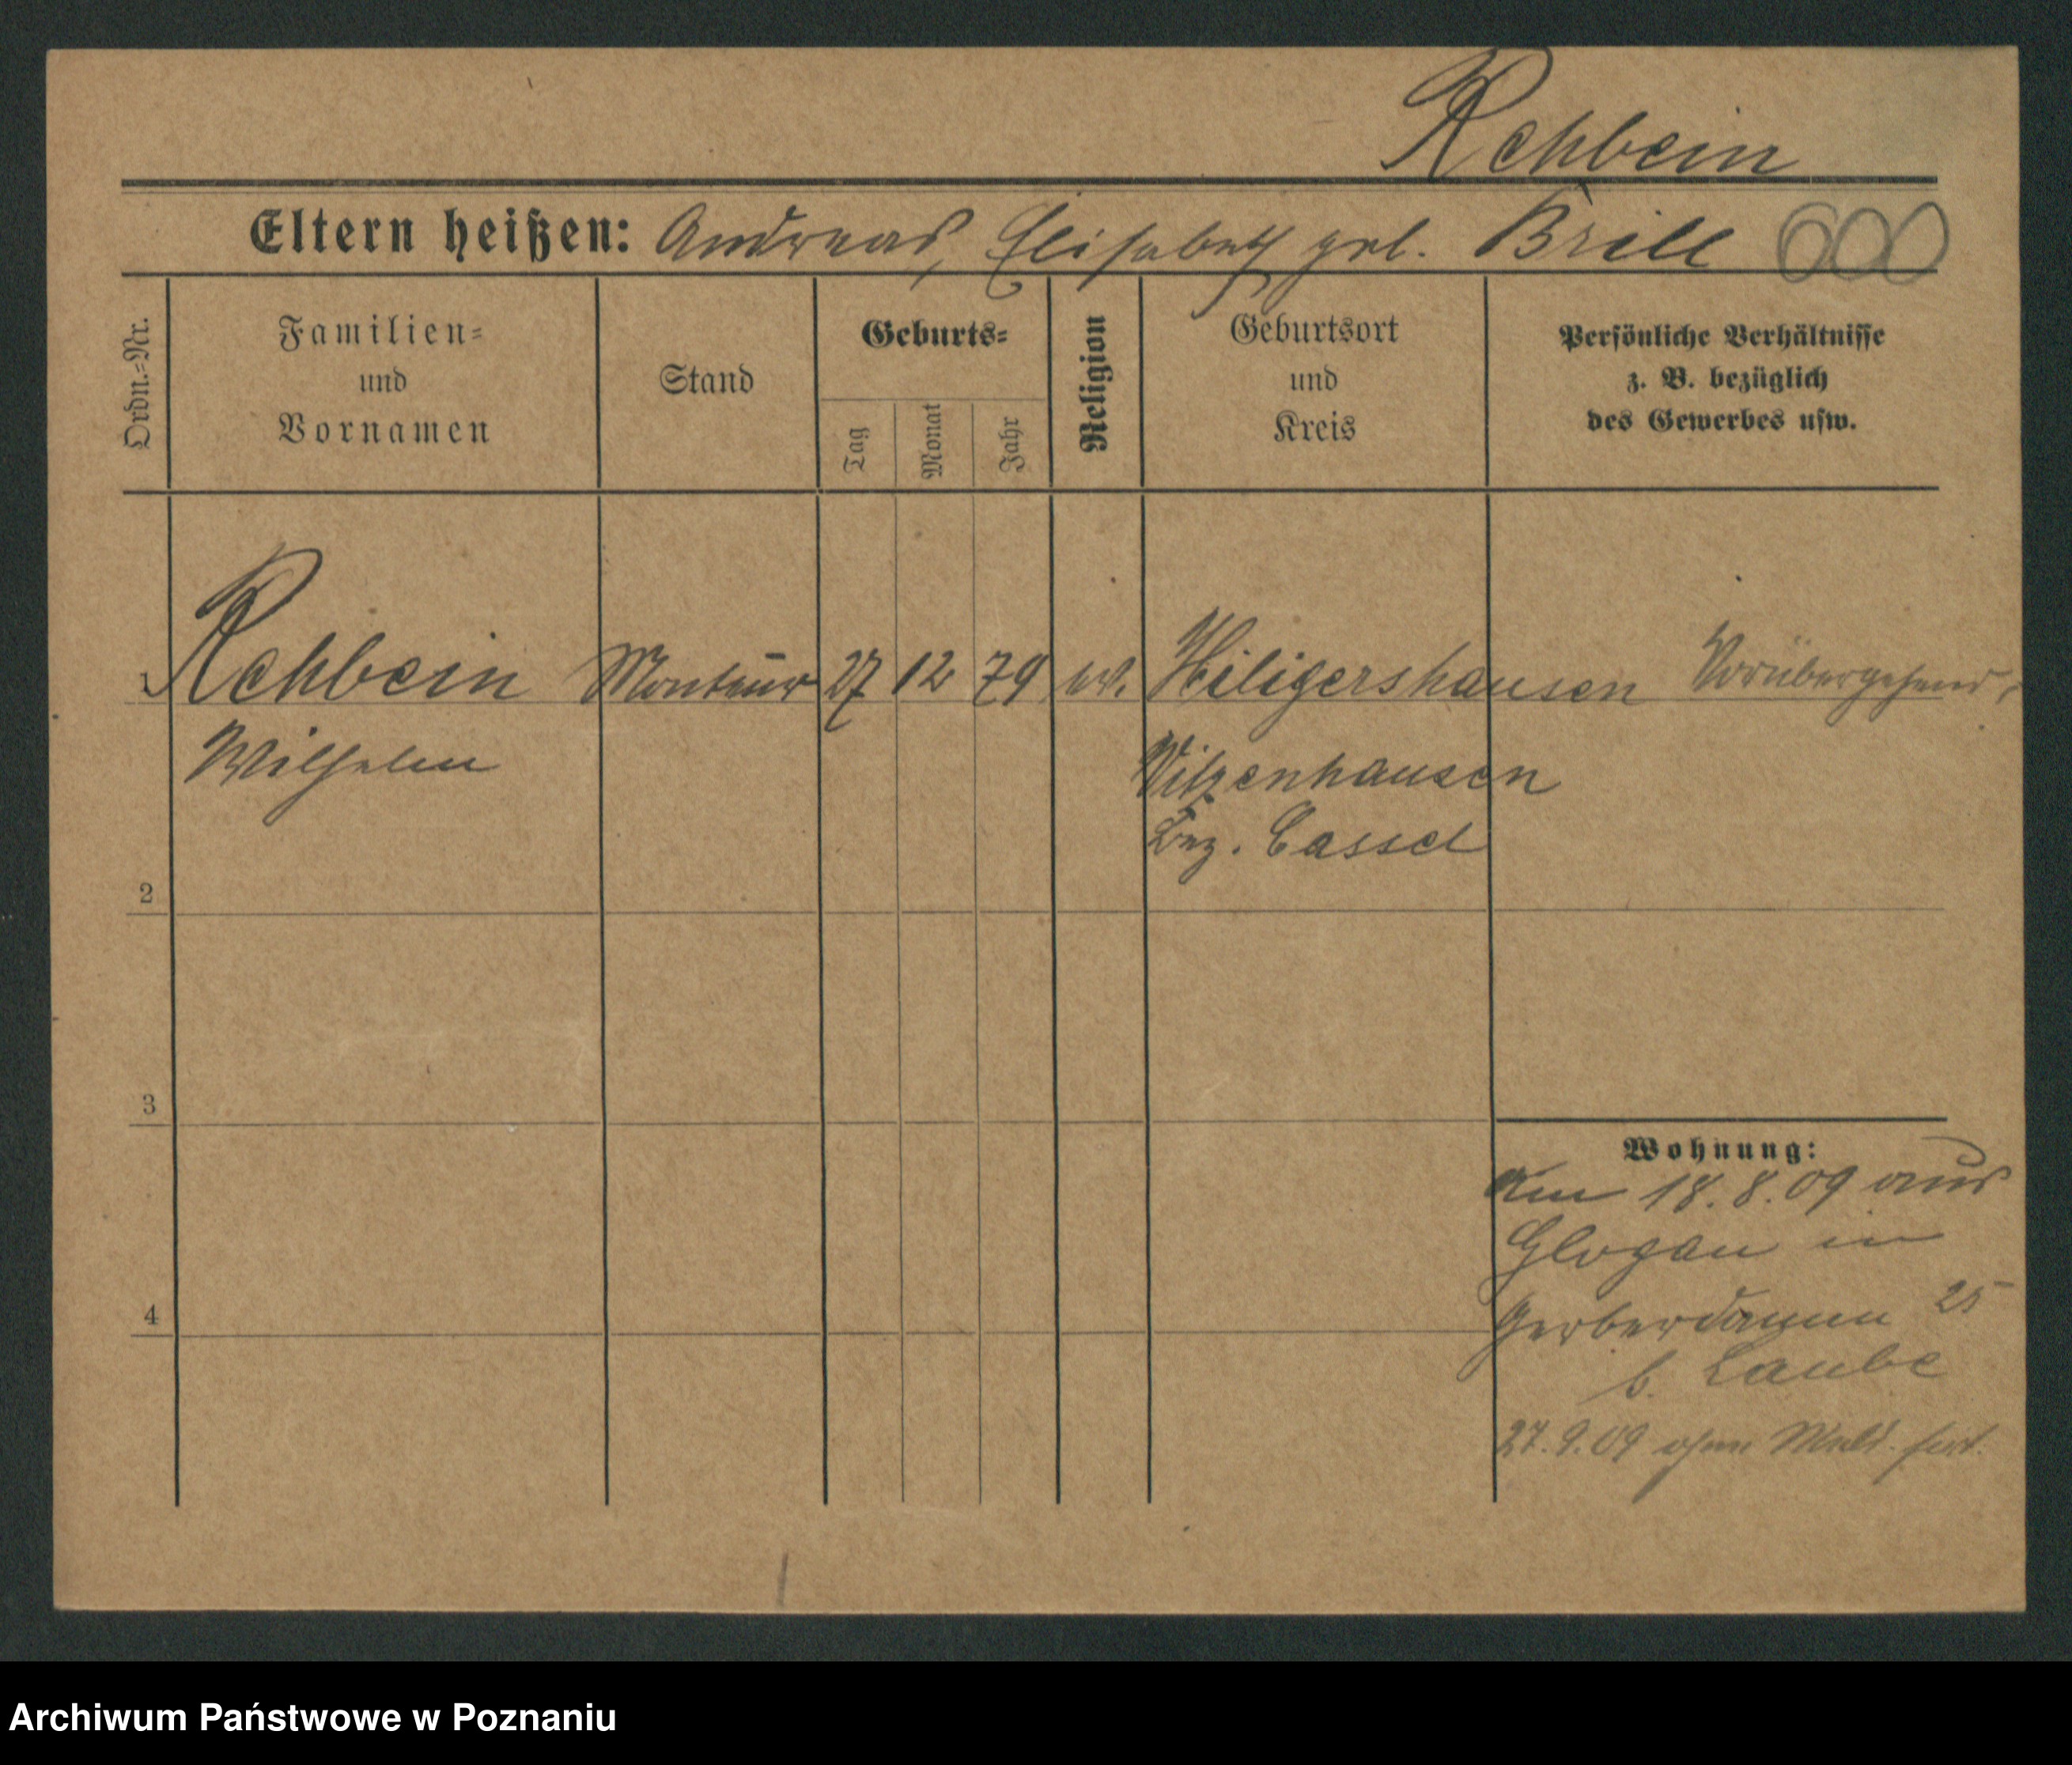 Rehbein
Eltern heißen: Andreas, Elisabeth geb. Brill 600
Ordn.=Nr.
Familien=
und
Vornamen
Stand
Geburts=
Tag
Monat
Jahr
Religion
Geburtsort
und
Kreis
Persönliche Verhältnisse
z. B. bezüglich
des Gewerbes usw.
1 Rehbein Monteur 27 12 79 ev. Hiligershausen Vorübergehend
Wilhelm
Witzenhausen
Bez. Cassel
2
3
4
Wohnung:
Am 18.8.09 aus
Glogau in
Gerberdamm 25
b. Laube
27.9.09 ohne Meld. fort.
Archiwum Państwowe w Poznaniu